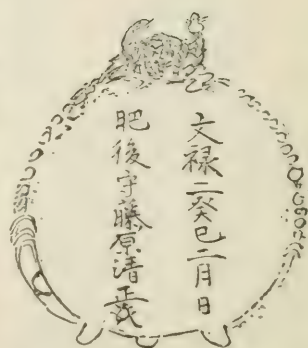 文禄二癸巳二月日
肥後守藤原清正